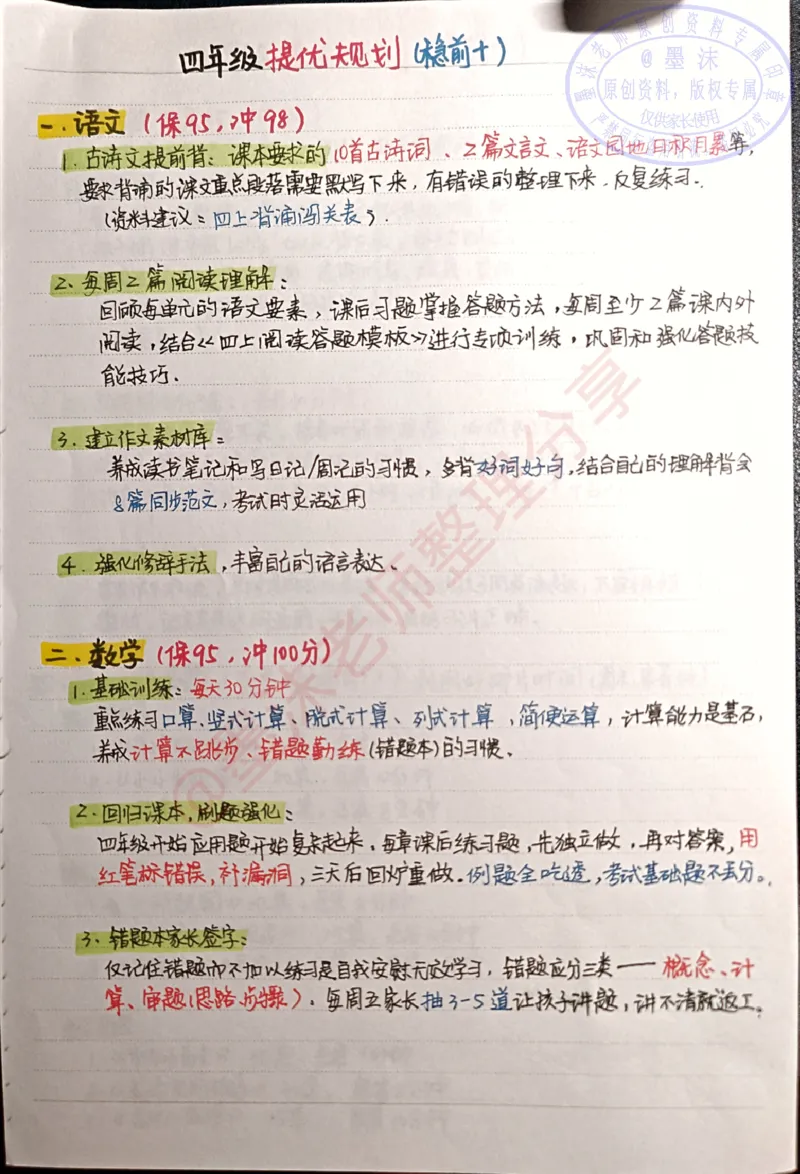 四年级提优规划(稳前十)
一.语文(保95,冲98)
1.古诗文提前背:课本要求的10首古诗词、2篇文言文、语文园地日积月累等,
要求背诵的课文重点段落需要默写下来,有错误的整理下来,反复练习.
(资料建议:四上背诵闯关表).
2.每周2篇阅读理解:
回顾每单元的语文要素,课后习题掌握答题方法,每周至少2篇课内外
阅读,结合《四上阅读答题模板》进行专项训练,巩固和强化答题技
能技巧.
3.建立作文素材库:
养成读书笔记和写日记/周记的习惯,多背好词好句,结合自己的理解背会
8篇同步范文,考试时灵活运用
4.强化修辞手法,丰富自己的语言表达.
二.数学(保95,冲100分)
1.基础训练:每天30分钟
重点练习口算、竖式计算、脱式计算、列式计算,简便运算,计算能力是基石,
养成计算不跳步、错题勤练(错题本)的习惯.
2.回归课本,刷题强化:
四年级开始应用题开始复杂起来,每章课后练习题,先独立做,再对答案,用
红笔标错误,补漏洞,三天后回炉重做.例题全吃透,考试基础题不丢分.
3.错题本家长签字:
仅记住错题而不加以练习是自我安慰无效学习,错题应分三类——概念、计
算、审题(思路、步骤).每周五家长抽3-5道让孩子讲题,讲不清就返工.
@墨沫老师整理分享
墨沫老师原创资料专属印章
@墨沫
原创资料,版权专属
仅供家长使用